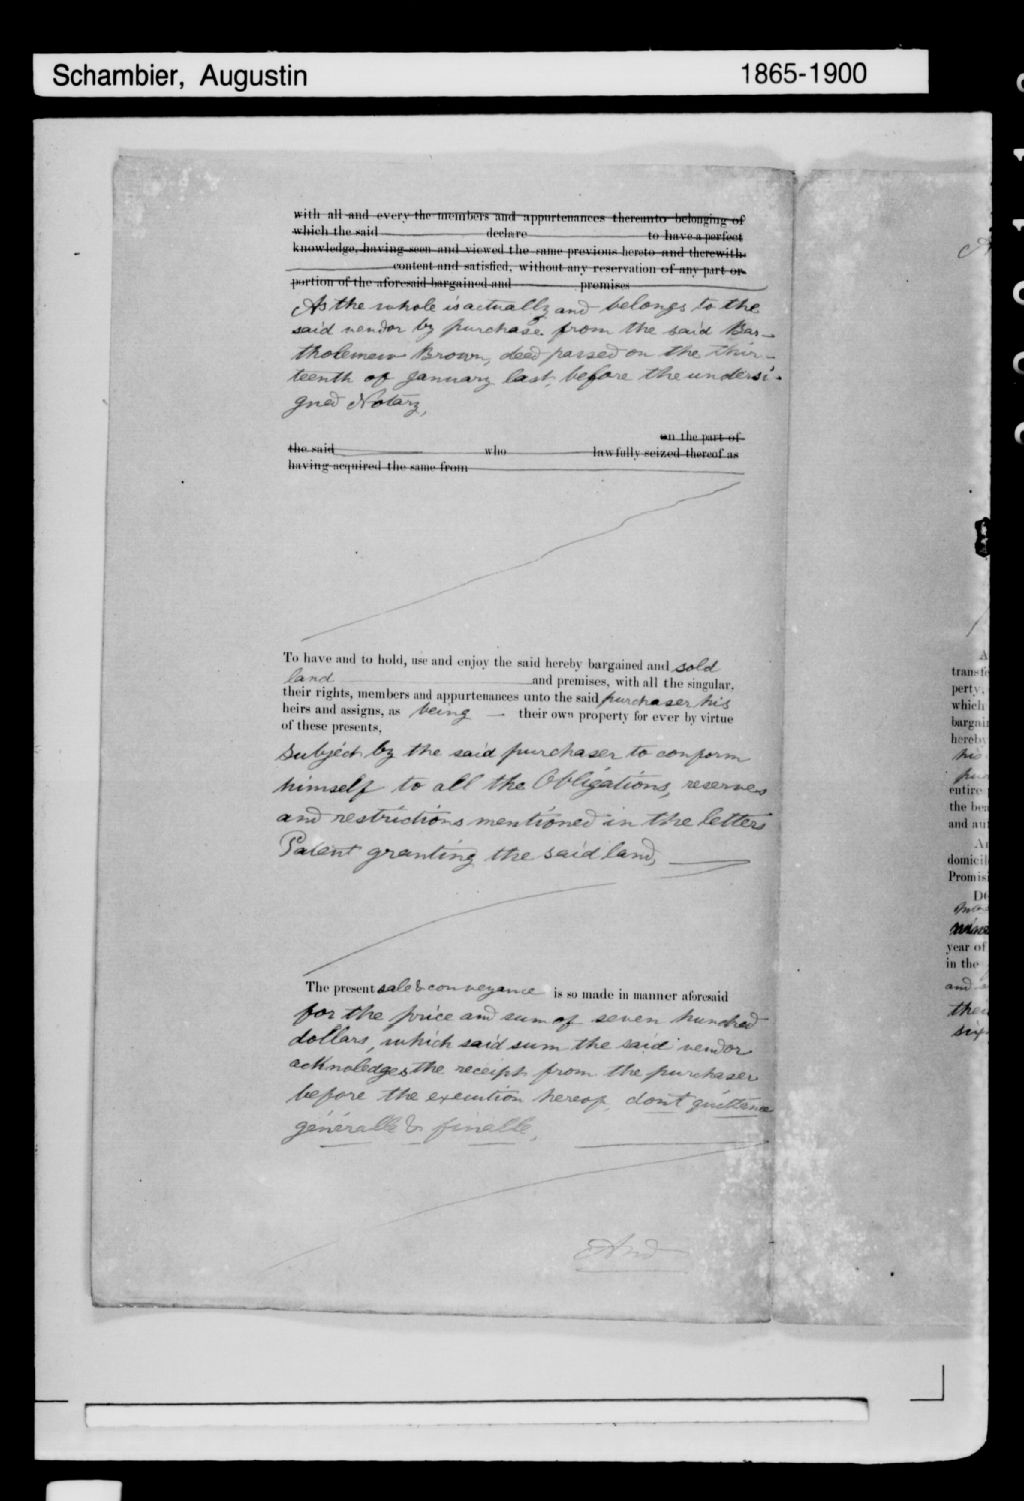 Schambier, Augustin 1865-1900
with all and every the members and appurtenances thereunto belonging of
which the said declare to have a perfect
knowledge, having seen and viewed the same previous hereto and therewith
content and satisfied, without any reservation of any part or
portion of the aforesaid bargained and premises
As the whole is actually and belongs to the
said vendor by purchase from the said Bar-
tholemew Brown, deed passed on the thir-
teenth of January last, before the undersi-
gned Notary,
on the part of
the said who lawfully seized thereof as
having acquired the same from
To have and to hold, use and enjoy the said hereby bargained and sold
land and premises, with all the singular,
their rights, members and appurtenances unto the said purchaser his
heirs and assigns, as being their own property for ever by virtue
of these presents,
Subject by the said purchaser to conform
himself to all the Obligations, reserves
and restrictions mentioned in the letters
Patent granting the said land,
The present sale & conveyance is so made in manner aforesaid
for the price and sum of seven hundred
dollars, which said sum the said vendor
acknoledges the receipt from the purchaser
before the execution hereof, dont quittance
générale & finalle,
And
A
transfe
perty,
which
bargai
hereby
his
pur
entire
the bea
and au
An
domicil
Promis
DO
nine
year of
in the
and
thei
six